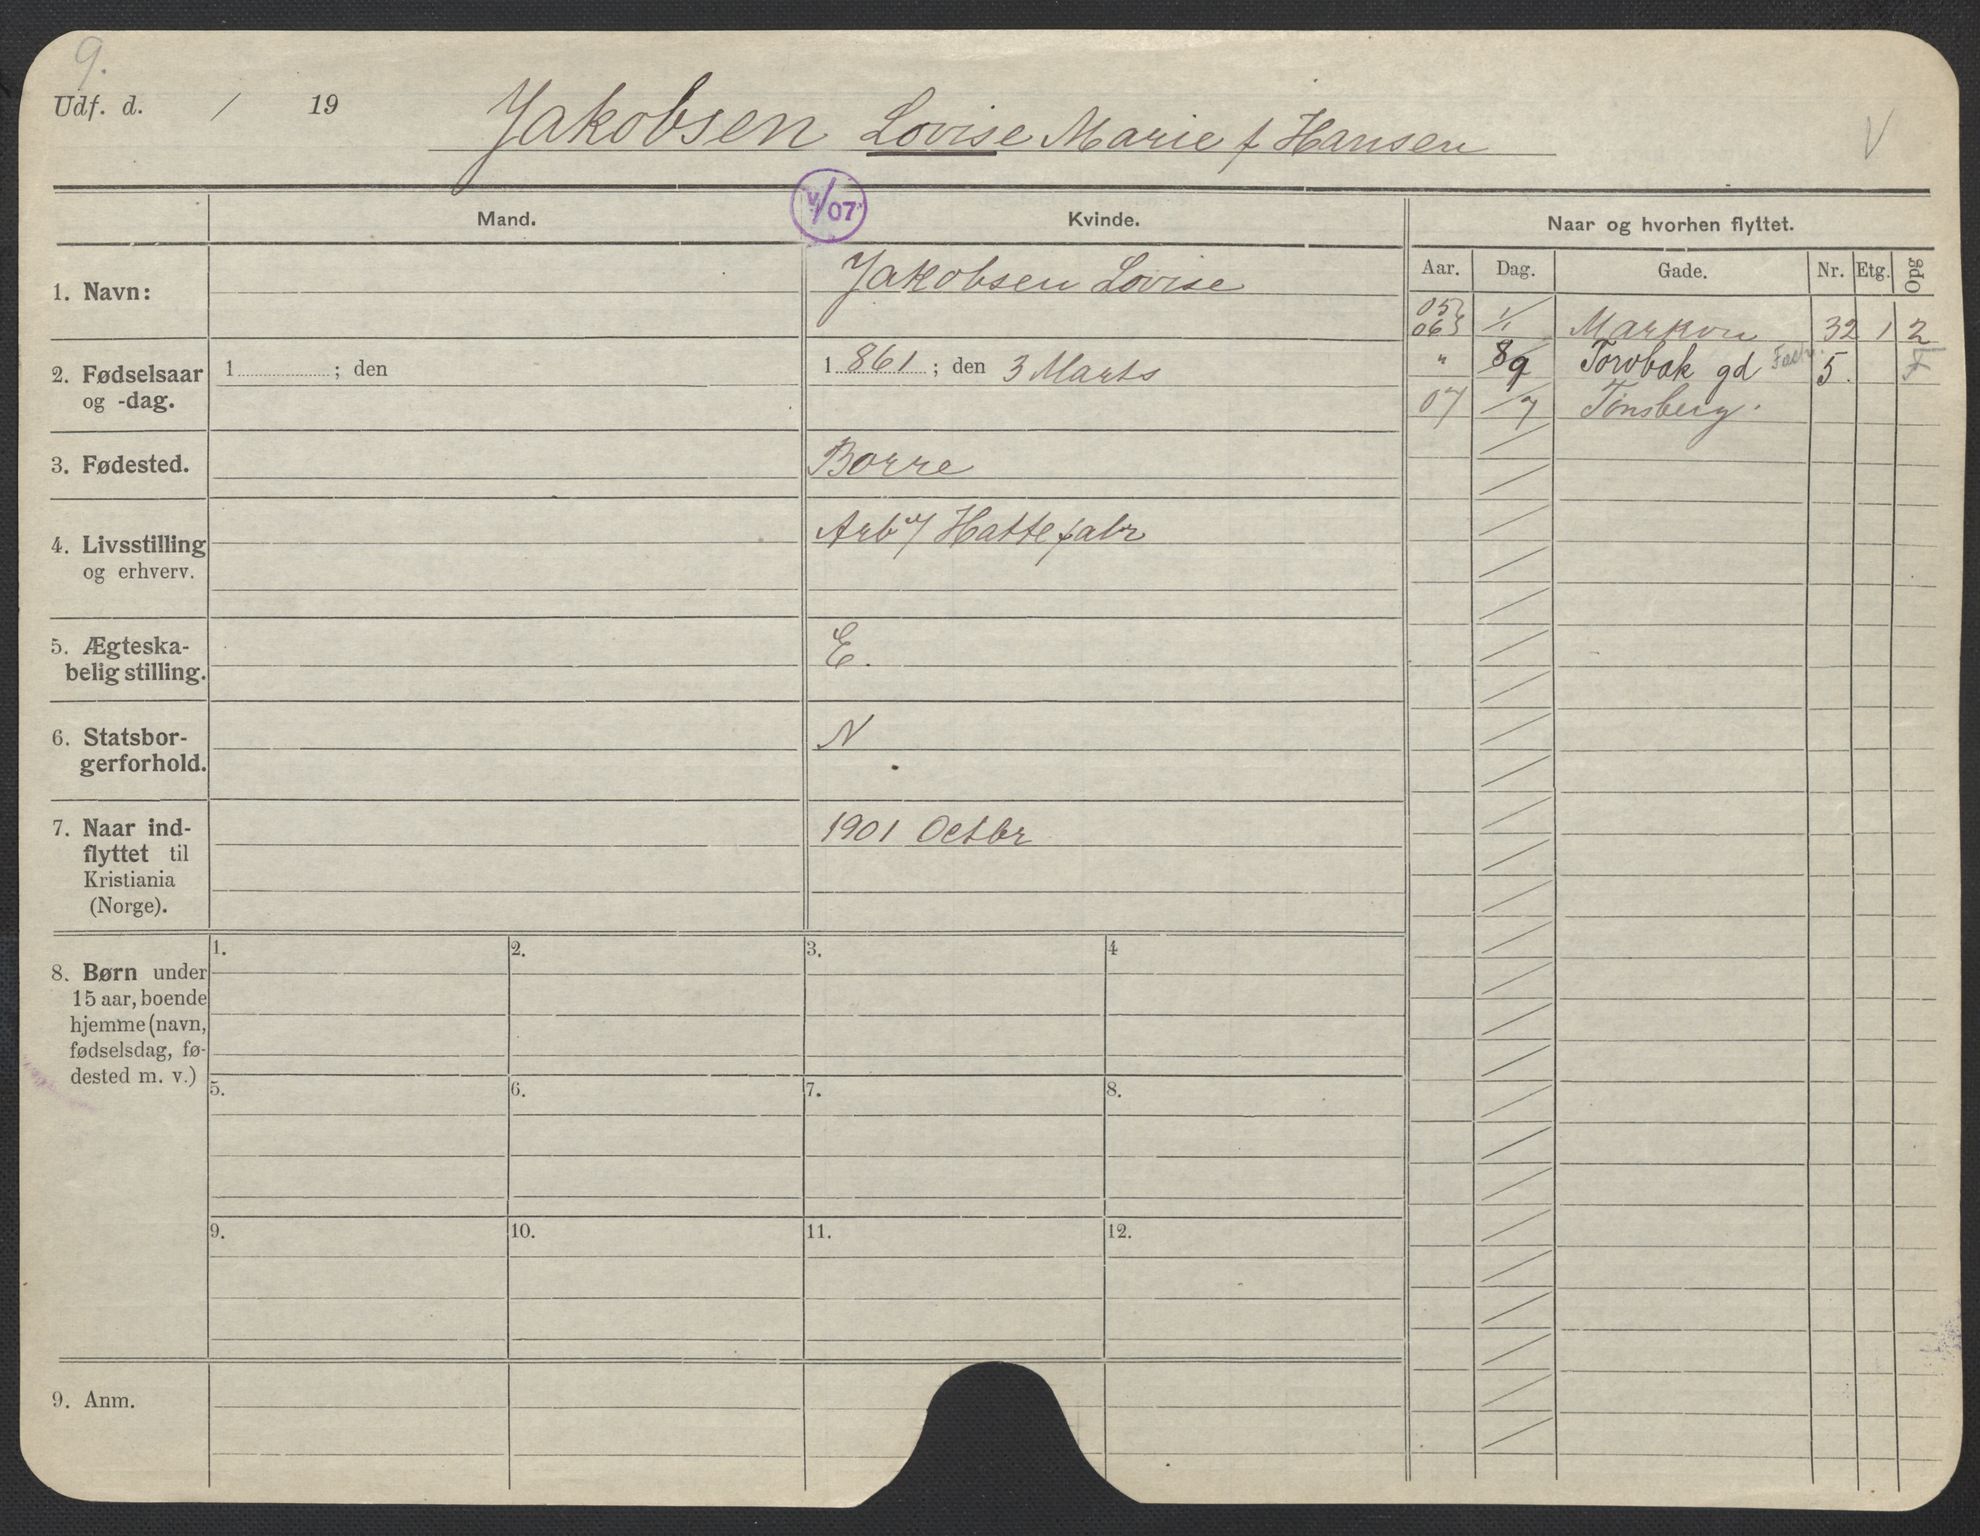 9.
Udf. d. / 19
Jakobsen Lovise Marie f Hansen
V
V/07
Mand.
Kvinde.
Naar og hvorhen flyttet.
Aar. Dag. Gade. Nr. Etg. Opg
1. Navn:
Jakobsen Lovise
05
06 1/1 Markvn 32 1 2
" 8/9 Torvbak gd 5.
07 /7 Tønsberg.
2. Fødselsaar
og -dag.
1 ; den
1 861 ; den 3 Marts
3. Fødested.
Borre
4. Livsstilling
og erhverv.
Arb Hattefabr
5. Ægteska-
belig stilling.
E.
6. Statsbor-
gerforhold.
N
7. Naar ind-
flyttet til
Kristiania
(Norge).
1901 Octbr
8. Børn under
15 aar, boende
hjemme (navn,
fødselsdag, fø-
dested m. v.)
1. 2. 3. 4
5. 6. 7. 8.
9. 10. 11. 12.
9. Anm.